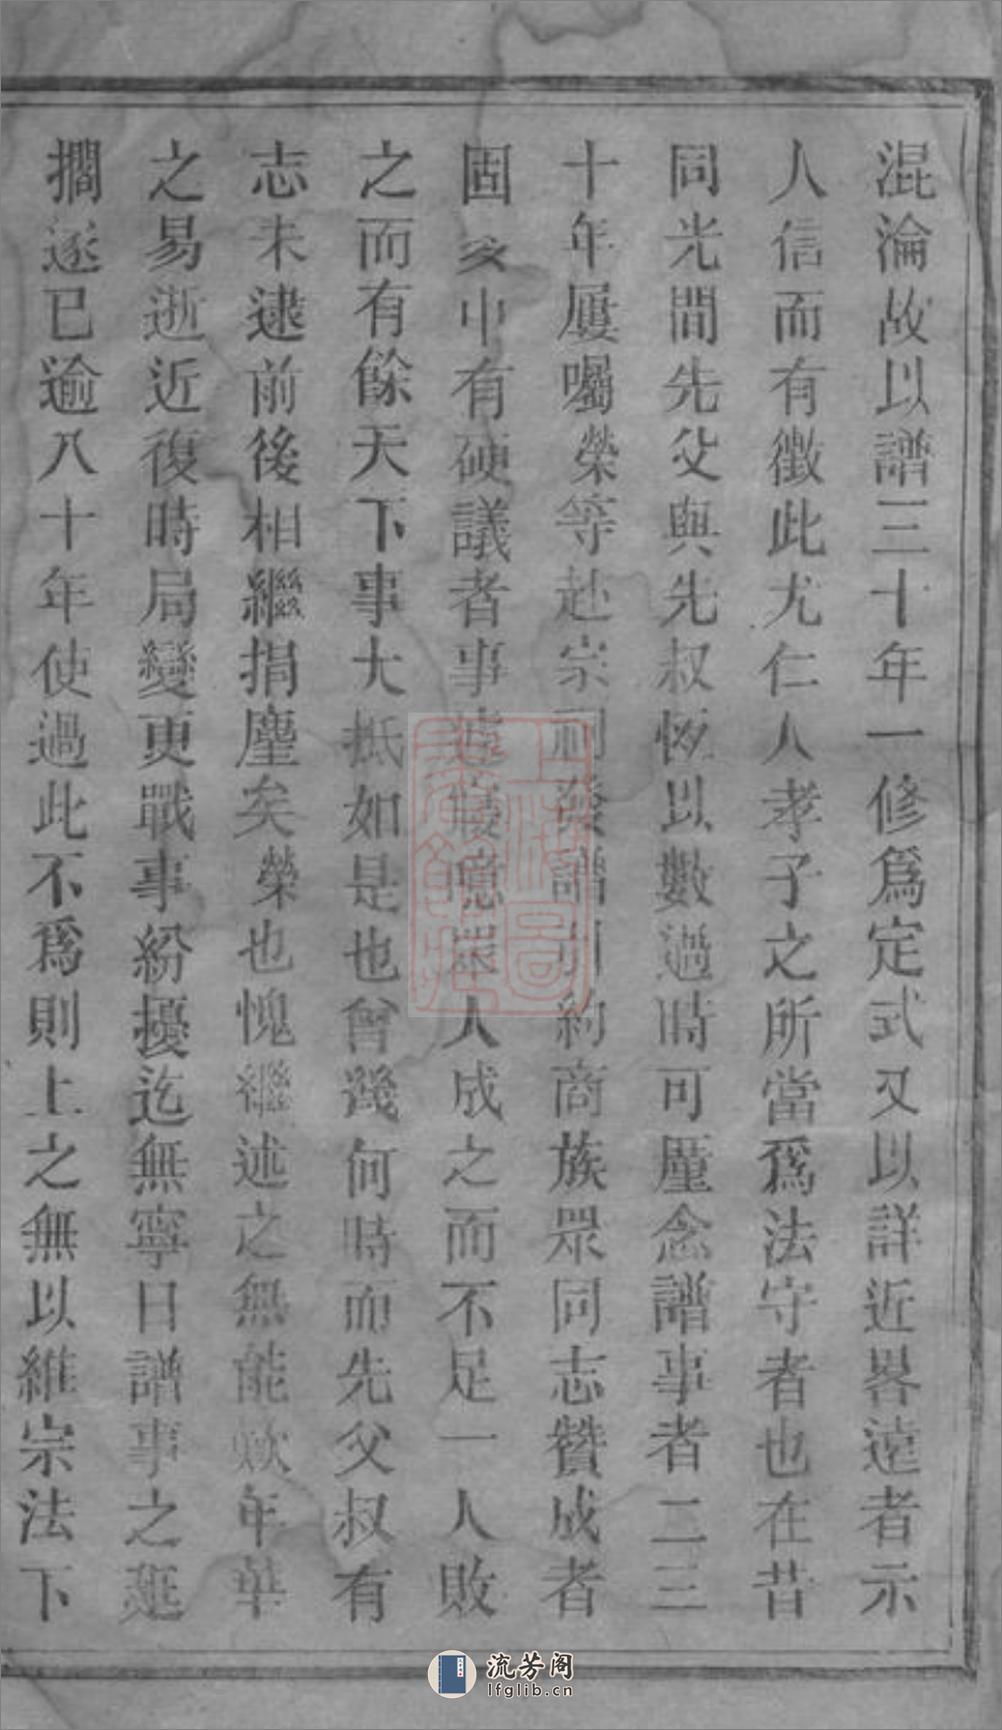 混淪故以譜三十年一修為定式又以詳近畧遠者示
人信而有徵此尤仁人孝子之所當為法守者也在昔
同光間先父與先叔恆以數過時可厪念譜事者二三
十年屢囑榮等赴宗祠發譜引約商族眾同志贊成者
固多中有硬議者事遠寢噫眾人成之而不足一人敗
之而有餘天下事大抵如是也曾幾何時而先父叔有
志未逮前後相繼捐塵矣榮也愧繼述之無能歎年華
之易逝近復時局變更戰事紛擾迄無寧日譜事之延
擱遂已逾八十年使過此不為則上之無以維宗法下
流芳阁
lfglib.cn